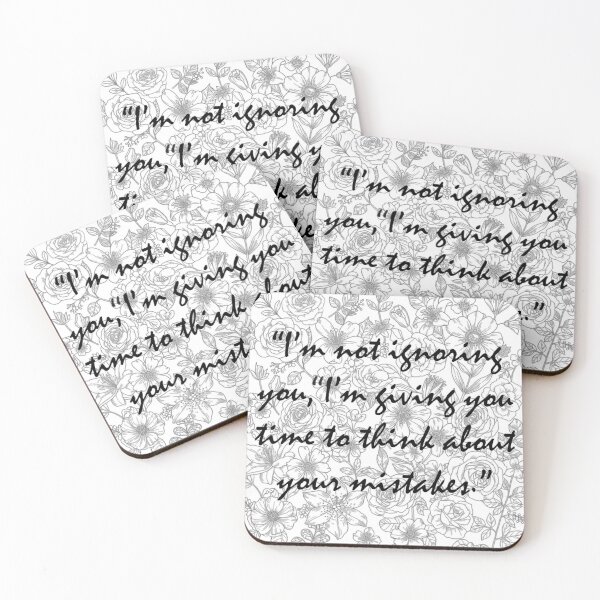 “I'm not ignoring
you,“I'm giving
think
“I'm not ignoring
you,“I'm giving you
time to think about
“I'm not ignoring
you,“I'm giving you
time to think about
your
“I'm not ignoring
you,“I'm giving you
time to think about
your mistakes.”